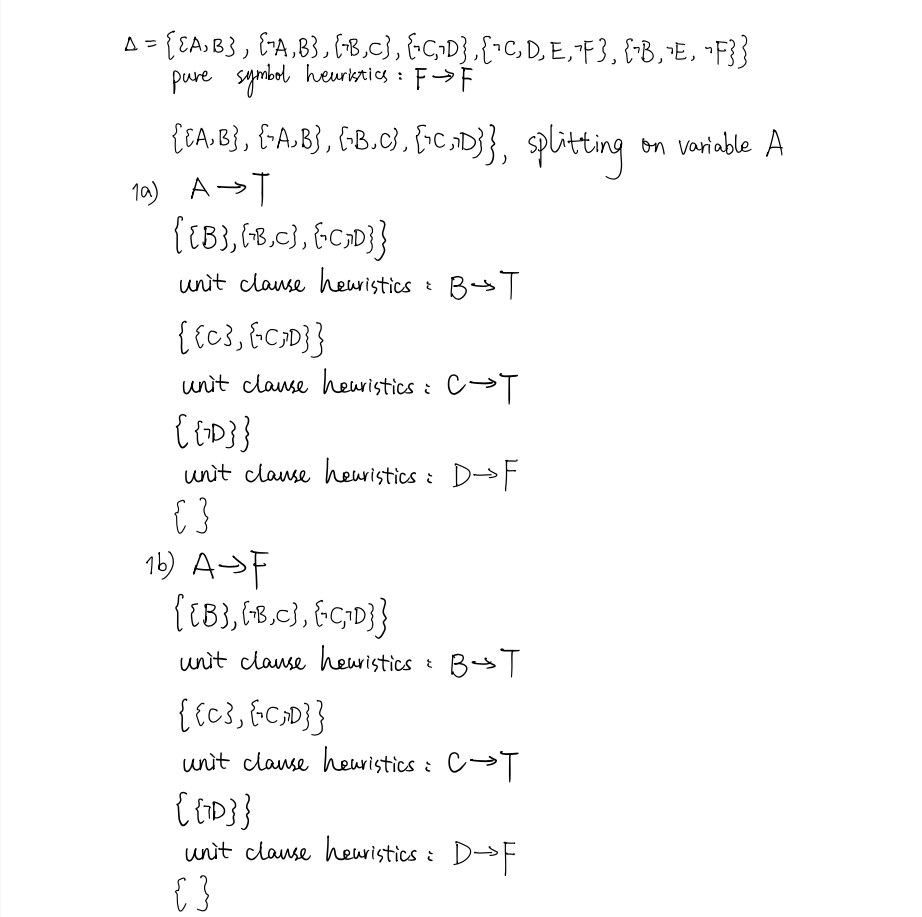 Δ = {{A,B}, {¬A,B}, {¬B,C}, {¬C,¬D}, {¬C,D,E,¬F}, {¬B,¬E,¬F}}
pure symbol heuristics : F→F
{{A,B}, {¬A,B}, {¬B,C}, {¬C,¬D}}, splitting on variable A
1a) A→T
{{B}, {¬B,C}, {¬C,¬D}}
unit clause heuristics : B→T
{{C}, {¬C,¬D}}
unit clause heuristics : C→T
{{¬D}}
unit clause heuristics : D→F
{ }
1b) A→F
{{B}, {¬B,C}, {¬C,¬D}}
unit clause heuristics : B→T
{{C}, {¬C,¬D}}
unit clause heuristics : C→T
{{¬D}}
unit clause heuristics : D→F
{ }